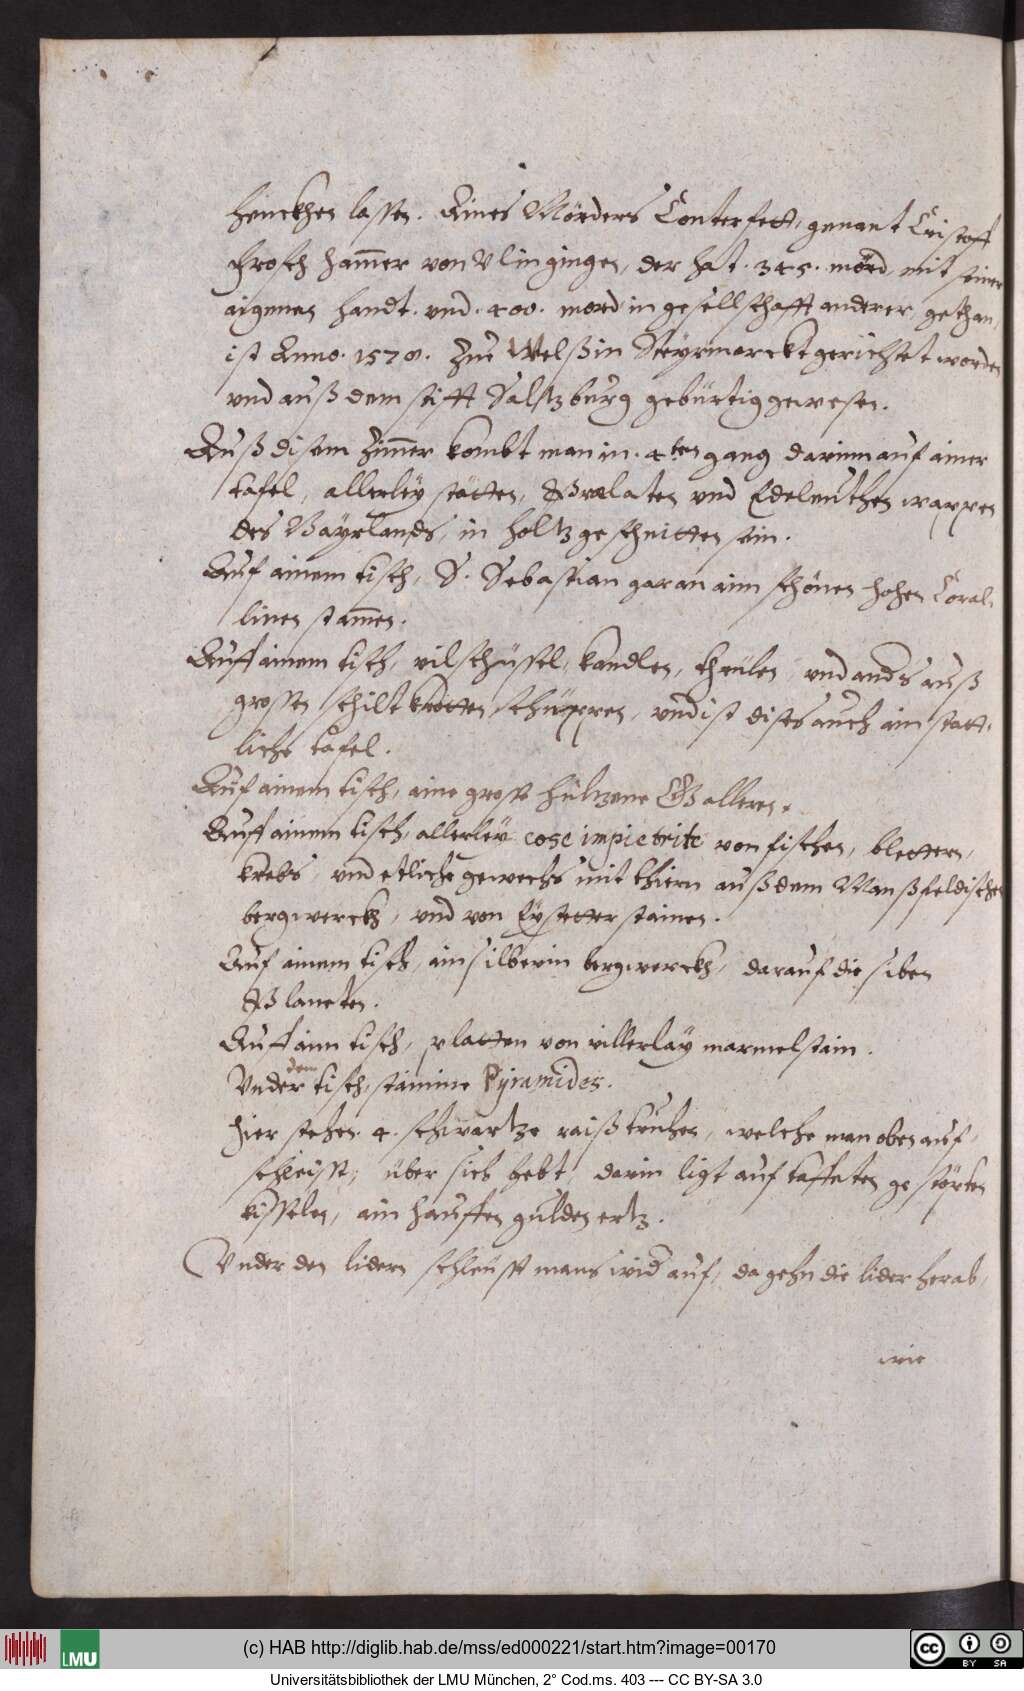 henckhen lassen. Aines Mörders Conterfett, genant Cristoff
Frosch ham̄er von Vlingingen, der hat. 345. mörd mit seiner
aignnen handt. und. 400. mord in gesellschafft anderer, gethan,
ist Anno. 1570. Zue Welß in Steyrmarckt gerichtet worden
und auß dem stifft Saltzburg gebürtig gewesen.
Auß disem Zim̄er kombt man in. 4ten gang darinn auf ainer
tafel, allerleÿ stätten, Prælaten und Edelleuthen wappen
des Baÿrlands, in holtz geschnitten sein.
Auf ainem tisch, S. Sebastian gar an ainn schönen hohen Coral-
linen stam̄en.
Auff ainem tisch, vil schüssel, kandlen, und anders auß
grossen schiltkrotten schüppen, und ist dises auch ain statt-
liche tafel.
Auf ainem tisch, aine grosse hültzene Galleren.
Auff ainem tisch, allerleÿ cose impietrite von fischen, blettern,
krebs, und etliche gewechs mit thiern auß dem Manßfeldischen
bergwerckh, und von Eÿstetter stainen.
Auf ainem tisch, ain silberin bergwerckh, darauf die siben
Planeten.
Auff ainn tisch, platten von villerlaÿ marmelstain.
dem
Under tisch, stainine Pÿramides.
Hier stehen. 4. schwartze raißtruhen, welche man oben auf-
schleisst, über sich hebt, darin ligt auf taffeten gestörkten
kisselen, ain hauffen gulden ertz.
Under den lidern schleusst mans wid auf, da gehn die lider herab,
wie
(c) HAB http://diglib.hab.de/mss/ed000221/start.htm?image=00170
LMU
cc BY SA
Universitätsbibliothek der LMU München, 2° Cod.ms. 403 --- CC BY-SA 3.0